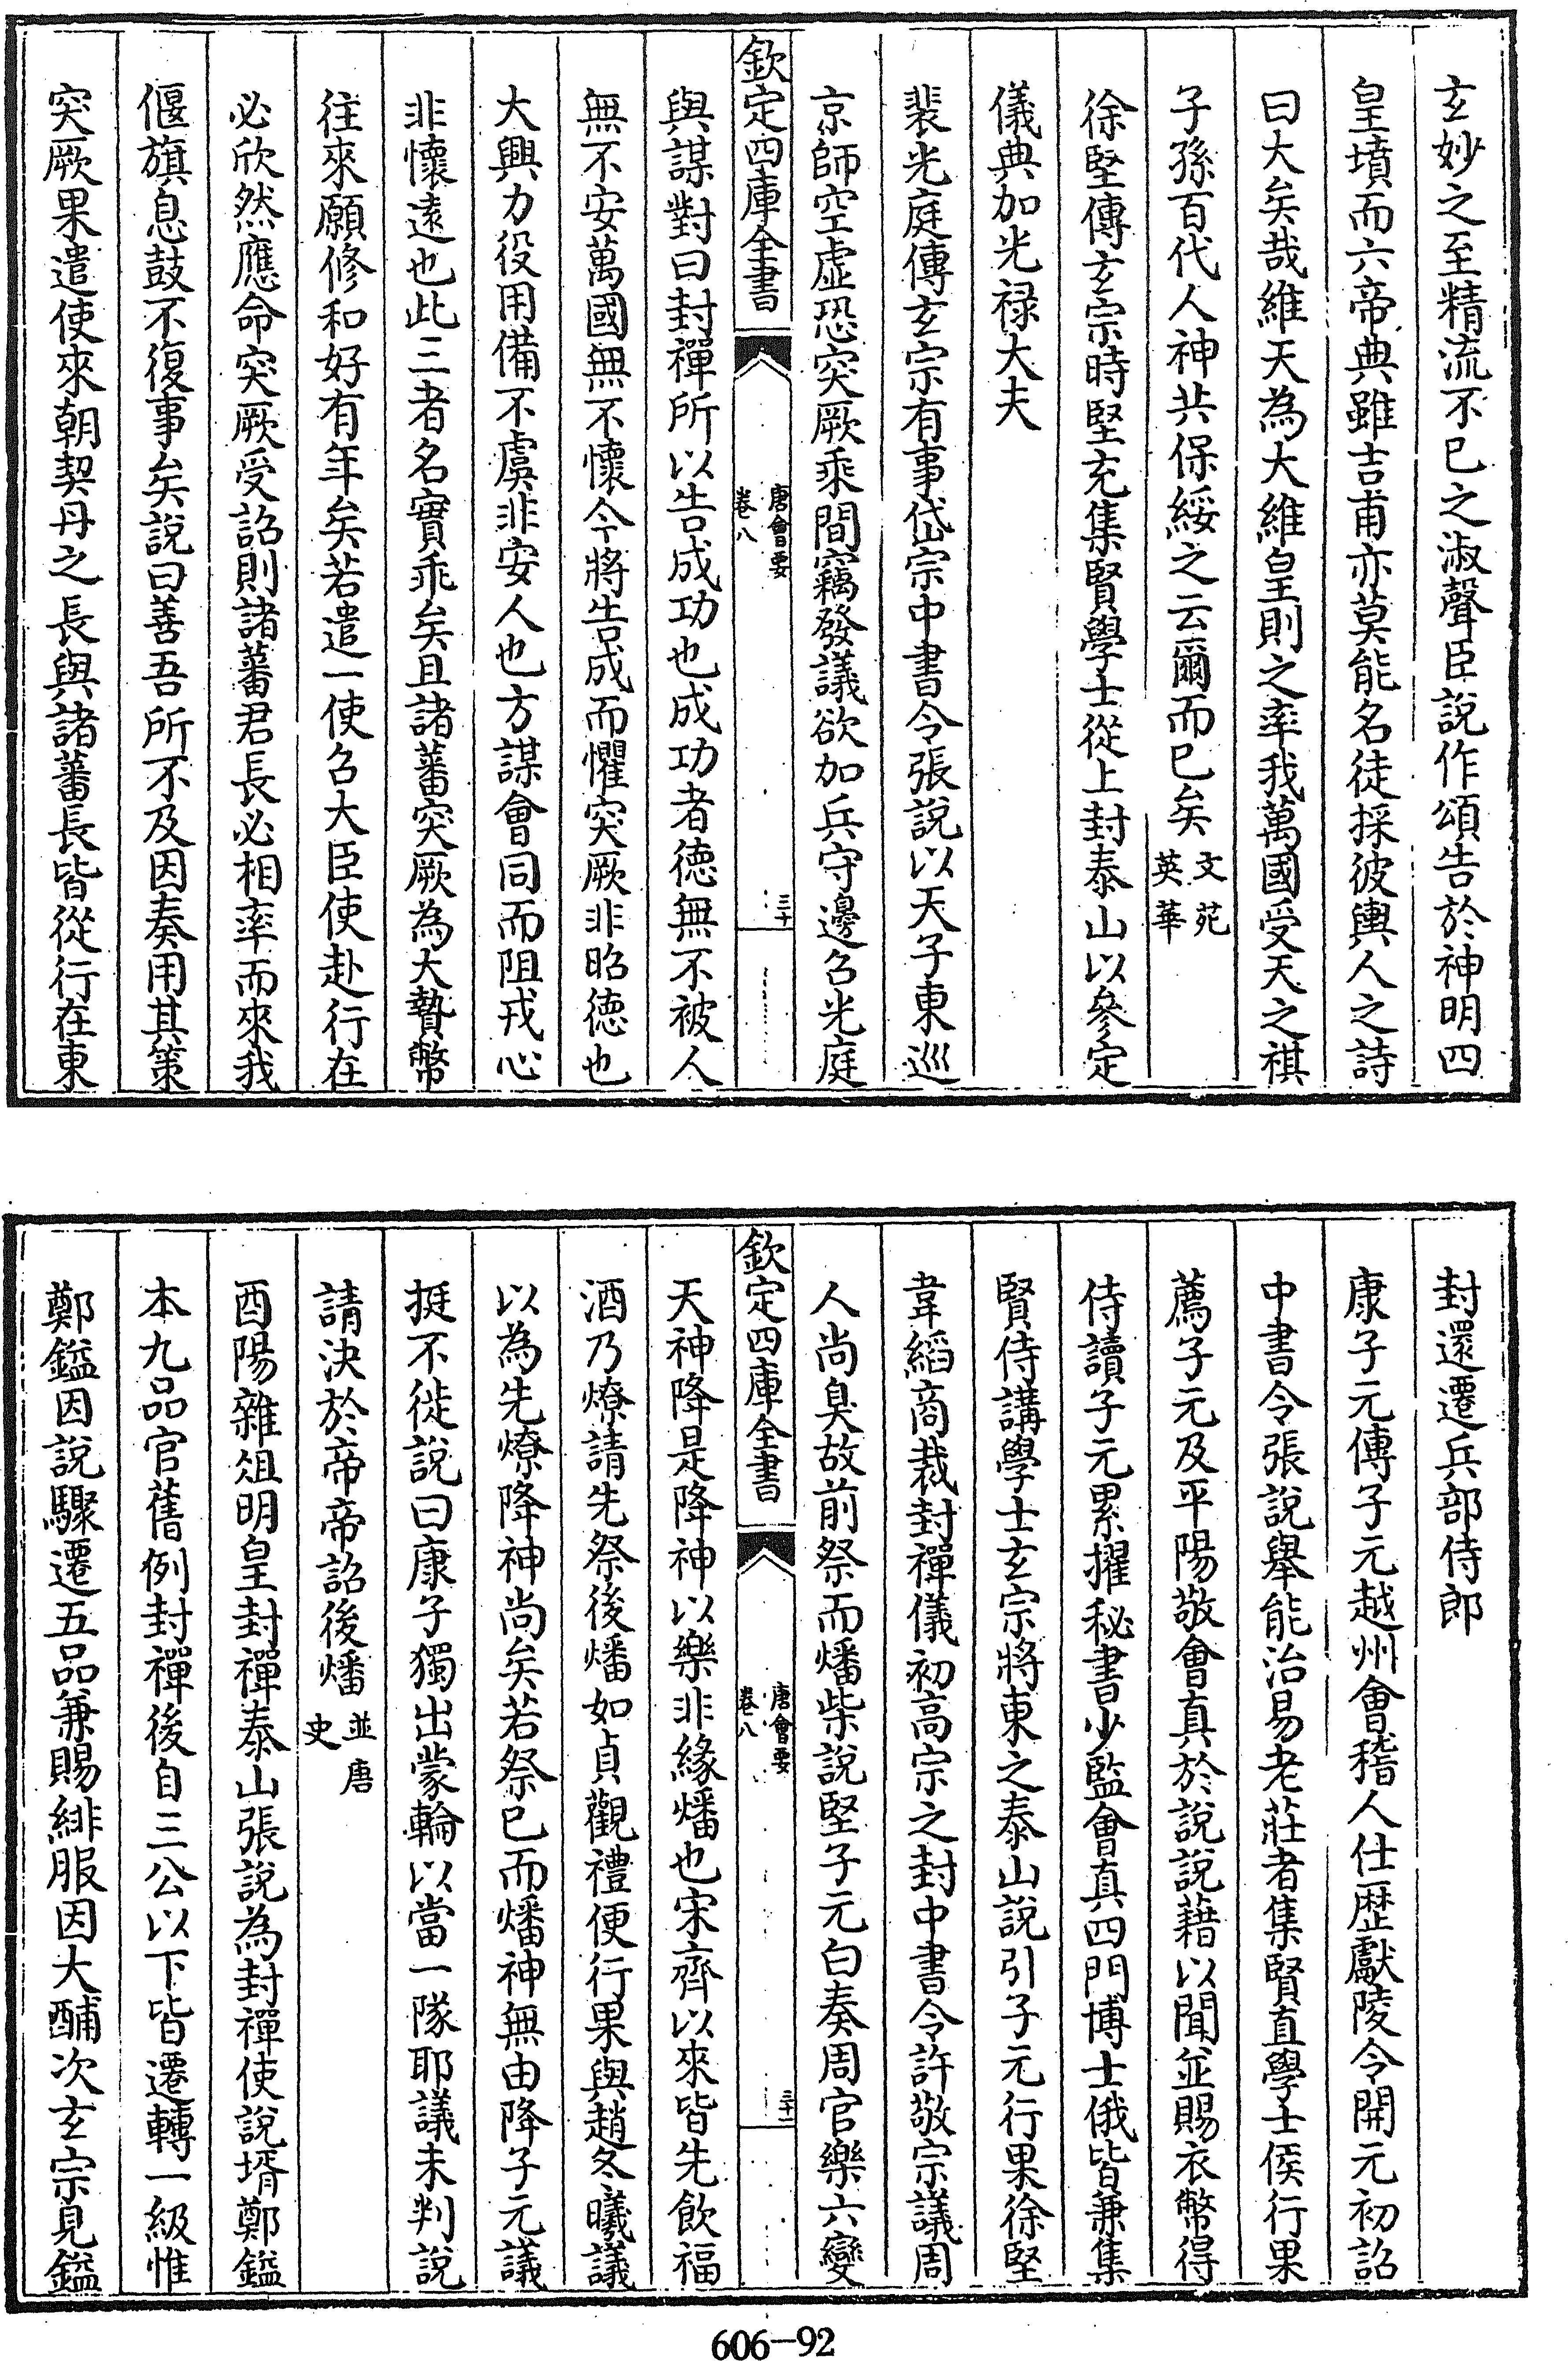 玄妙之至精流不已之淑聲臣說作頌告於神明四
皇墳而六帝典雖吉甫亦莫能名徒採彼輿人之詩
曰大矣哉維天為大維皇則之率我萬國受天之祺
子孫百代人神共保綏之云爾而已矣文苑英華
徐堅傳玄宗時堅充集賢學士從上封泰山以參定
儀典加光禄大夫
裴光庭傳玄宗有事岱宗中書令張說以天子東巡
京師空虛恐突厥乘間竊發議欲加兵守邊召光庭
欽定四庫全書
唐會要
卷八
三十
與謀對曰封禪所以告成功也成功者德無不被人
無不安萬國無不懷今將告成而懼突厥非昭德也
大興力役用備不虞非安人也方謀會同而阻戎心
非懷遠也此三者名實乖矣且諸蕃突厥為大贄幣
往來願修和好有年矣若遣一使召大臣使赴行在
必欣然應命突厥受詔則諸蕃君長必相率而來我
偃旗息鼓不復事矣說曰善吾所不及因奏用其策
突厥果遣使來朝契丹之長與諸蕃長皆從行在東
封還遷兵部侍郎
康子元傳子元越州會稽人仕歷獻陵令開元初詔
中書令張說舉能治易老莊者集賢直學士侯行果
薦子元及平陽敬會真於說說藉以聞並賜衣幣得
侍讀子元累擢秘書少監會真四門博士俄皆兼集
賢侍講學士玄宗將東之泰山說引子元行果徐堅
韋縚商裁封禪儀初高宗之封中書令許敬宗議周
人尚臭故前祭而燔柴說堅子元白奏周官樂六變
欽定四庫全書
唐會要
卷八
三十一
天神降是降神以樂非緣燔也宋齊以來皆先飲福
酒乃燎請先祭後燔如貞觀禮便行果與趙冬曦議
以為先燎降神尚矣若祭已而燔神無由降子元議
挺不徙說曰康子獨出蒙輪以當一隊耶議未判說
請決於帝帝詔後燔並唐史
酉陽雜俎明皇封禪泰山張說為封禪使說壻鄭鎰
本九品官舊例封禪後自三公以下皆遷轉一級惟
鄭鎰因說驟遷五品兼賜緋服因大酺次玄宗見鎰
606-92